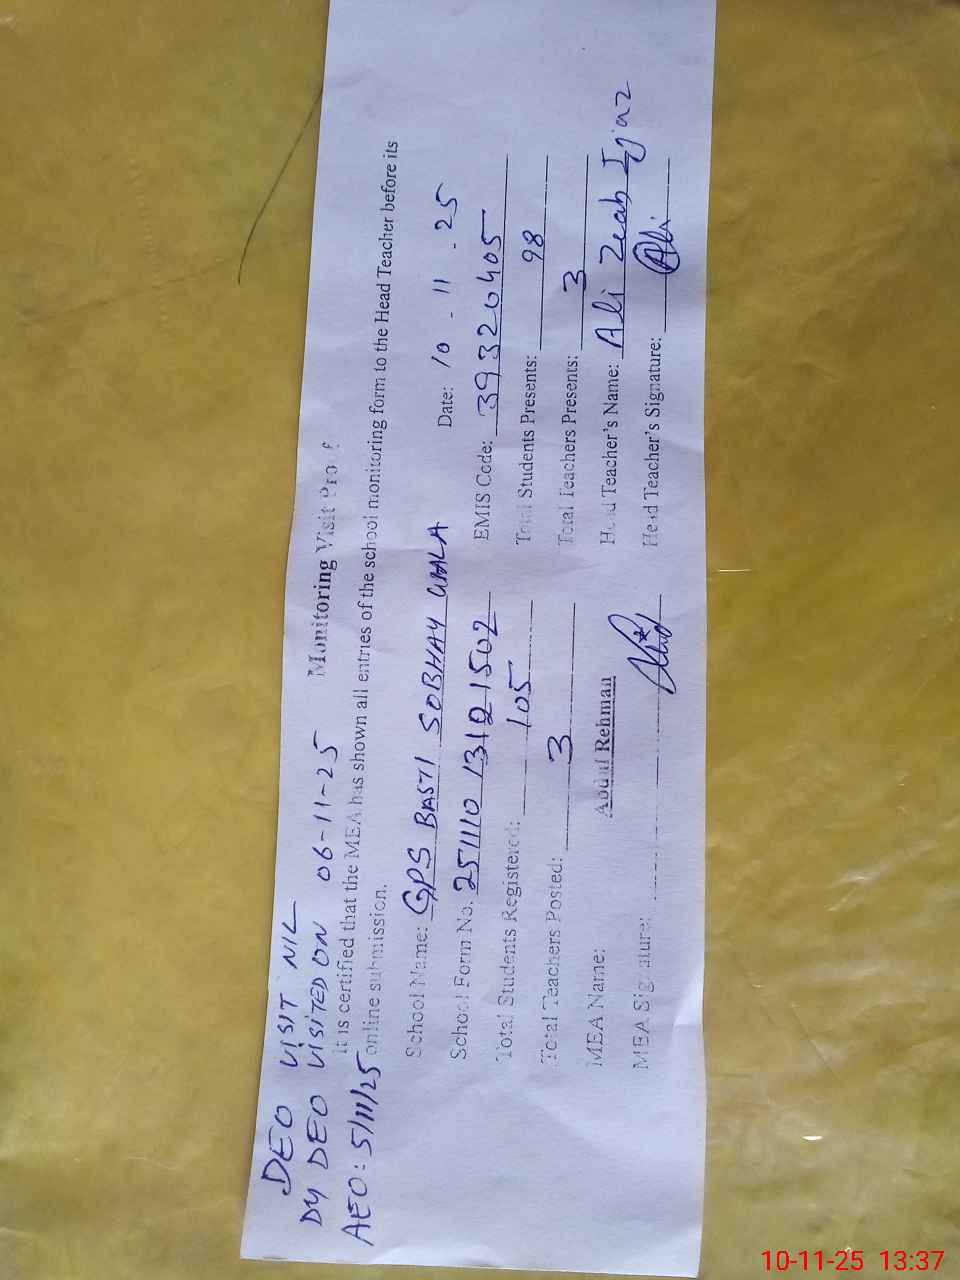 DEO VISIT NIL
DY DEO VISITED ON 06-11-25
AEO: 5/11/25
Monitoring Visit Proof
It is certified that the MEA has shown all entries of the school monitoring form to the Head Teacher before its
online submission.
School Name: GPS BASTI SOBHAY WALA Date: 10-11-25
School Form No. 251110 13121502 EMIS Code: 39320405
Total Students Registered: 105 Total Students Presents: 98
Total Teachers Posted: 3 Total Teachers Presents: 3
MEA Name: Abdul Rehman Head Teacher's Name: Ali Zeab Ijaz
MEA Signature: Head Teacher's Signature: Ali
10-11-25 13:37